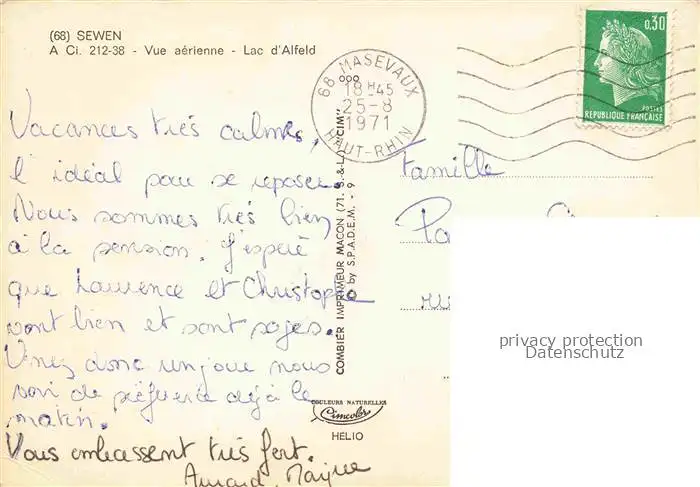 (68) SEWEN
A Ci. 212-38 - Vue aérienne - Lac d'Alfeld
68 MASEVAUX
18H45
25-8
1971
HAUT-RHIN
0,30
POSTES
REPUBLIQUE FRANÇAISE
Vacances très calmes,
l'idéal pour se reposer.
Nous sommes très bien
à la pension. J'espère
que Laurence et Christophe
vont bien et sont sages.
Venez donc un jour nous
voir de préférence déjà le
matin.
Vous embrassent très fort.
Famille
COMBIER IMPRIMEUR MACON (71. S.-&-L.) "CIM"
© by S.P.A.D.E.M. - 9
COULEURS NATURELLES
Cimcolor
HELIO
privacy protection
Datenschutz